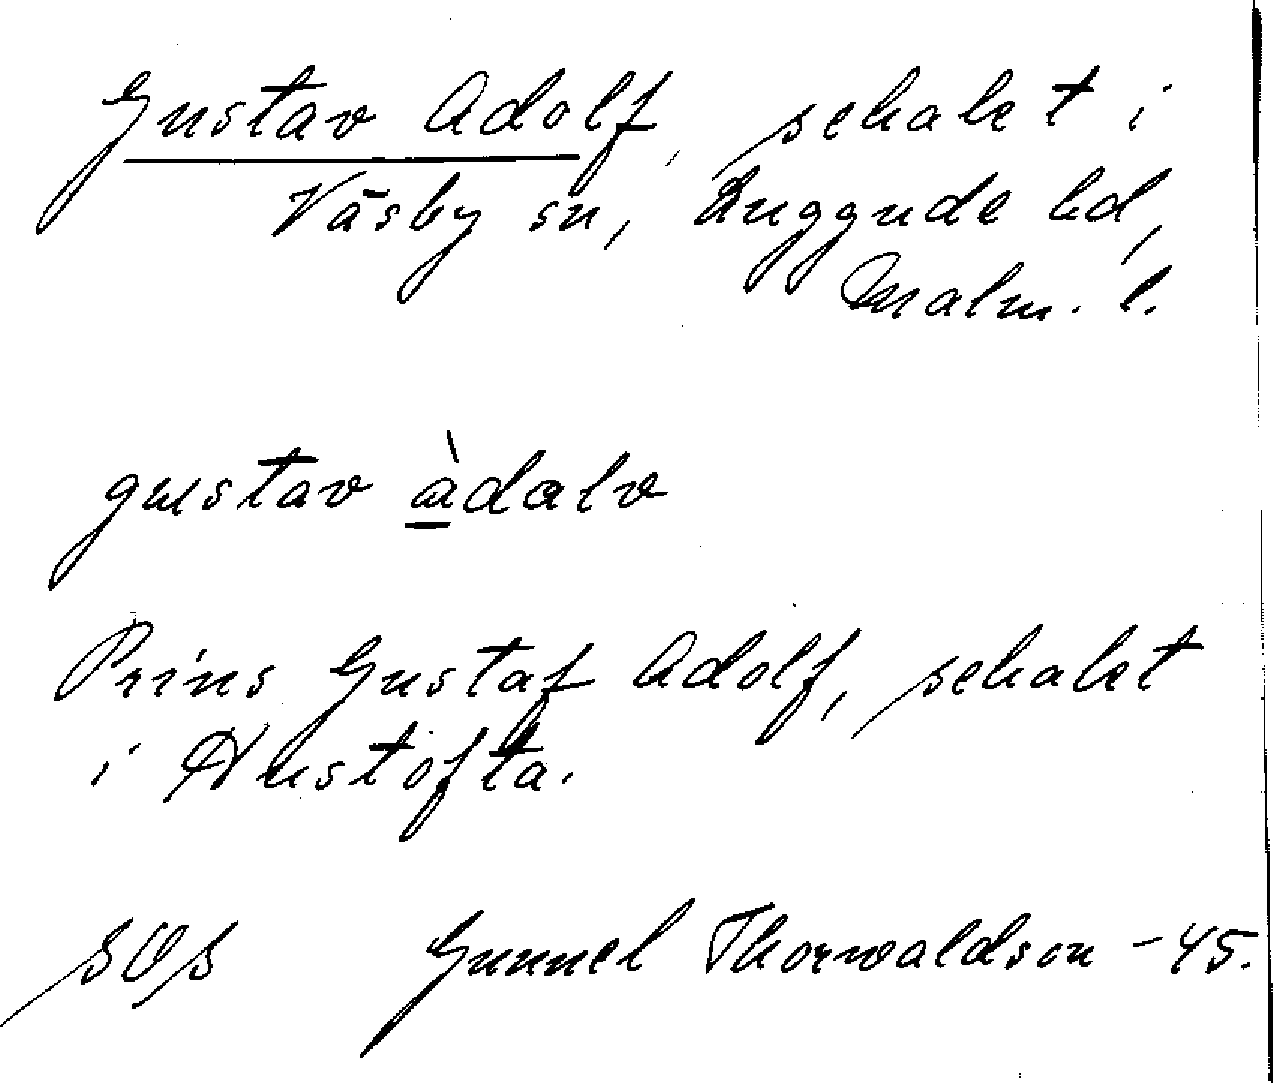 Gustav Adolf, schaket i
Väsby sn, Luggude hd,
Malm. l.
gustav àdalv
Prins Gustaf Adolf, schaktet
i Hustofta.
Gunnel Thorwaldson -45.